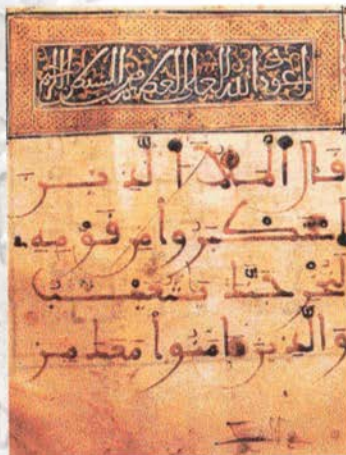 اعوذ بالله العلى العظيم من الشيطن الرجيم
قَالَ ٱلْمَلَأُ ٱلَّذِينَ
ٱسْتَكْبَرُوا۟ مِن قَوْمِهِ
لَنُخْرِجَنَّكَ يَٰشُعَيْبُ
وَٱلَّذِينَ ءَامَنُوا۟ مَعَكَ مِن